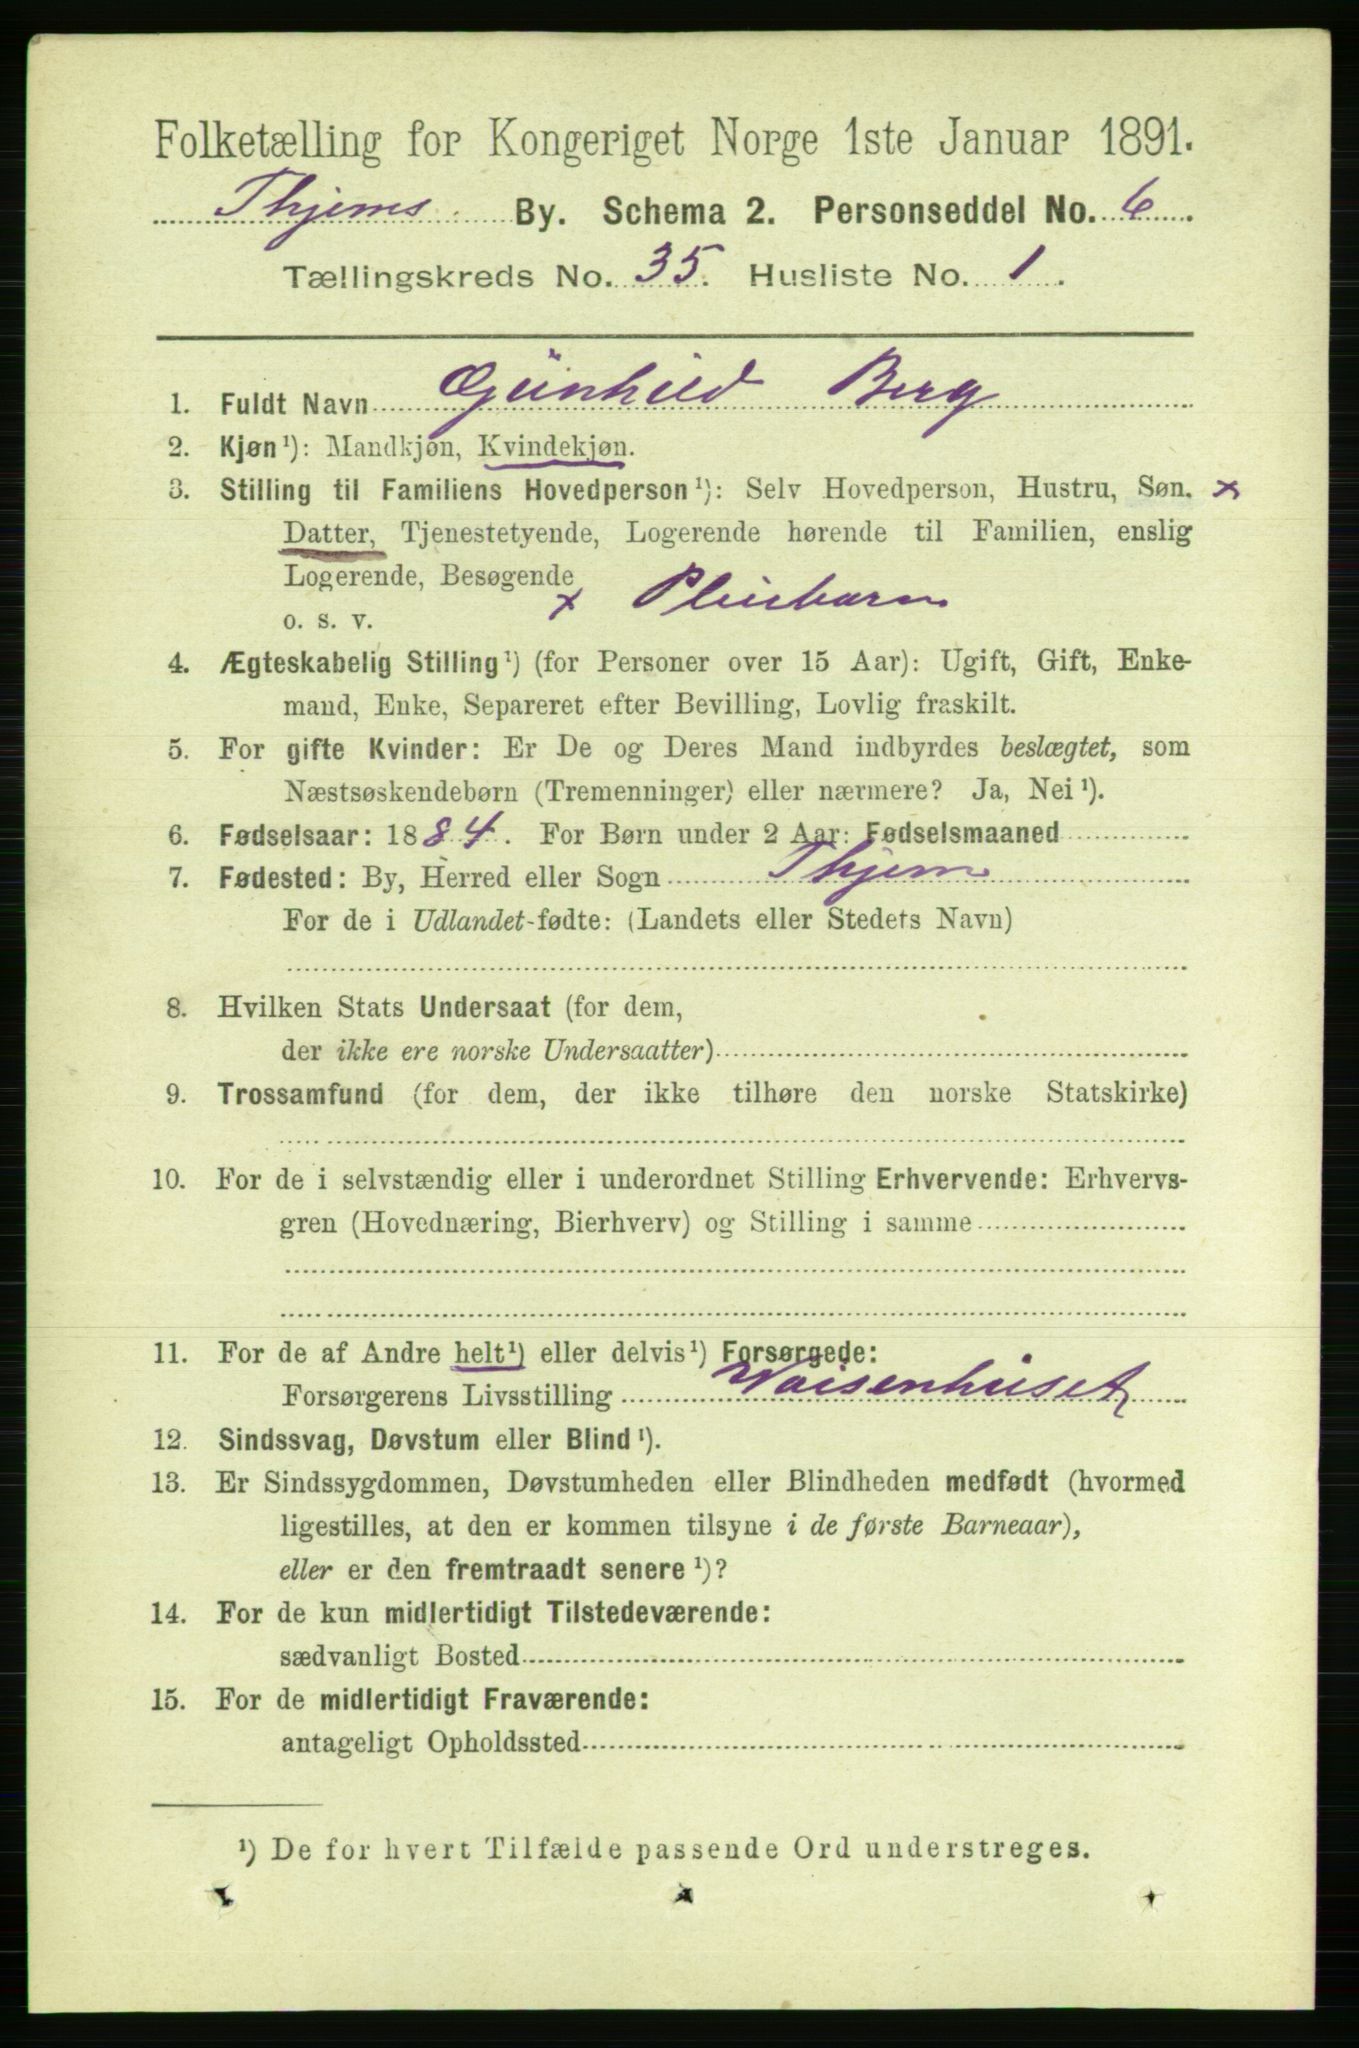 Folketælling for Kongeriget Norge 1ste Januar 1891.
Thjems By. Schema 2. Personseddel No. 6.
Tællingskreds No. 35. Husliste No. 1.
1. Fuldt Navn Gunhild Berg
2. Kjøn¹): Mandkjøn, Kvindekjøn.
3. Stilling til Familiens Hovedperson¹): Selv Hovedperson, Hustru, Søn. x
Datter, Tjenestetyende, Logerende hørende til Familien, enslig
Logerende, Besøgende
o. s. v. x Pleiebarn
4. Ægteskabelig Stilling¹) (for Personer over 15 Aar): Ugift, Gift, Enke-
mand, Enke, Separeret efter Bevilling, Lovlig fraskilt.
5. For gifte Kvinder: Er De og Deres Mand indbyrdes beslægtet, som
Næstsøskendebørn (Tremenninger) eller nærmere? Ja, Nei¹).
6. Fødselsaar: 1884. For Børn under 2 Aar: Fødselsmaaned
7. Fødested: By, Herred eller Sogn Thjem
For de i Udlandet-fødte: (Landets eller Stedets Navn)
8. Hvilken Stats Undersaat (for dem,
der ikke ere norske Undersaatter)
9. Trossamfund (for dem, der ikke tilhøre den norske Statskirke)
10. For de i selvstændig eller i underordnet Stilling Erhvervende: Erhvervs-
gren (Hovednæring, Bierhverv) og Stilling i samme
11. For de af Andre helt¹) eller delvis¹) Forsørgede:
Forsørgerens Livsstilling Waisenhuset
12. Sindssvag, Døvstum eller Blind¹).
13. Er Sindssygdommen, Døvstumheden eller Blindheden medfødt (hvormed
ligestilles, at den er kommen tilsyne i de første Barneaar),
eller er den fremtraadt senere¹)?
14. For de kun midlertidigt Tilstedeværende:
sædvanligt Bosted
15. For de midlertidigt Fraværende:
antageligt Opholdssted
¹) De for hvert Tilfælde passende Ord understreges.